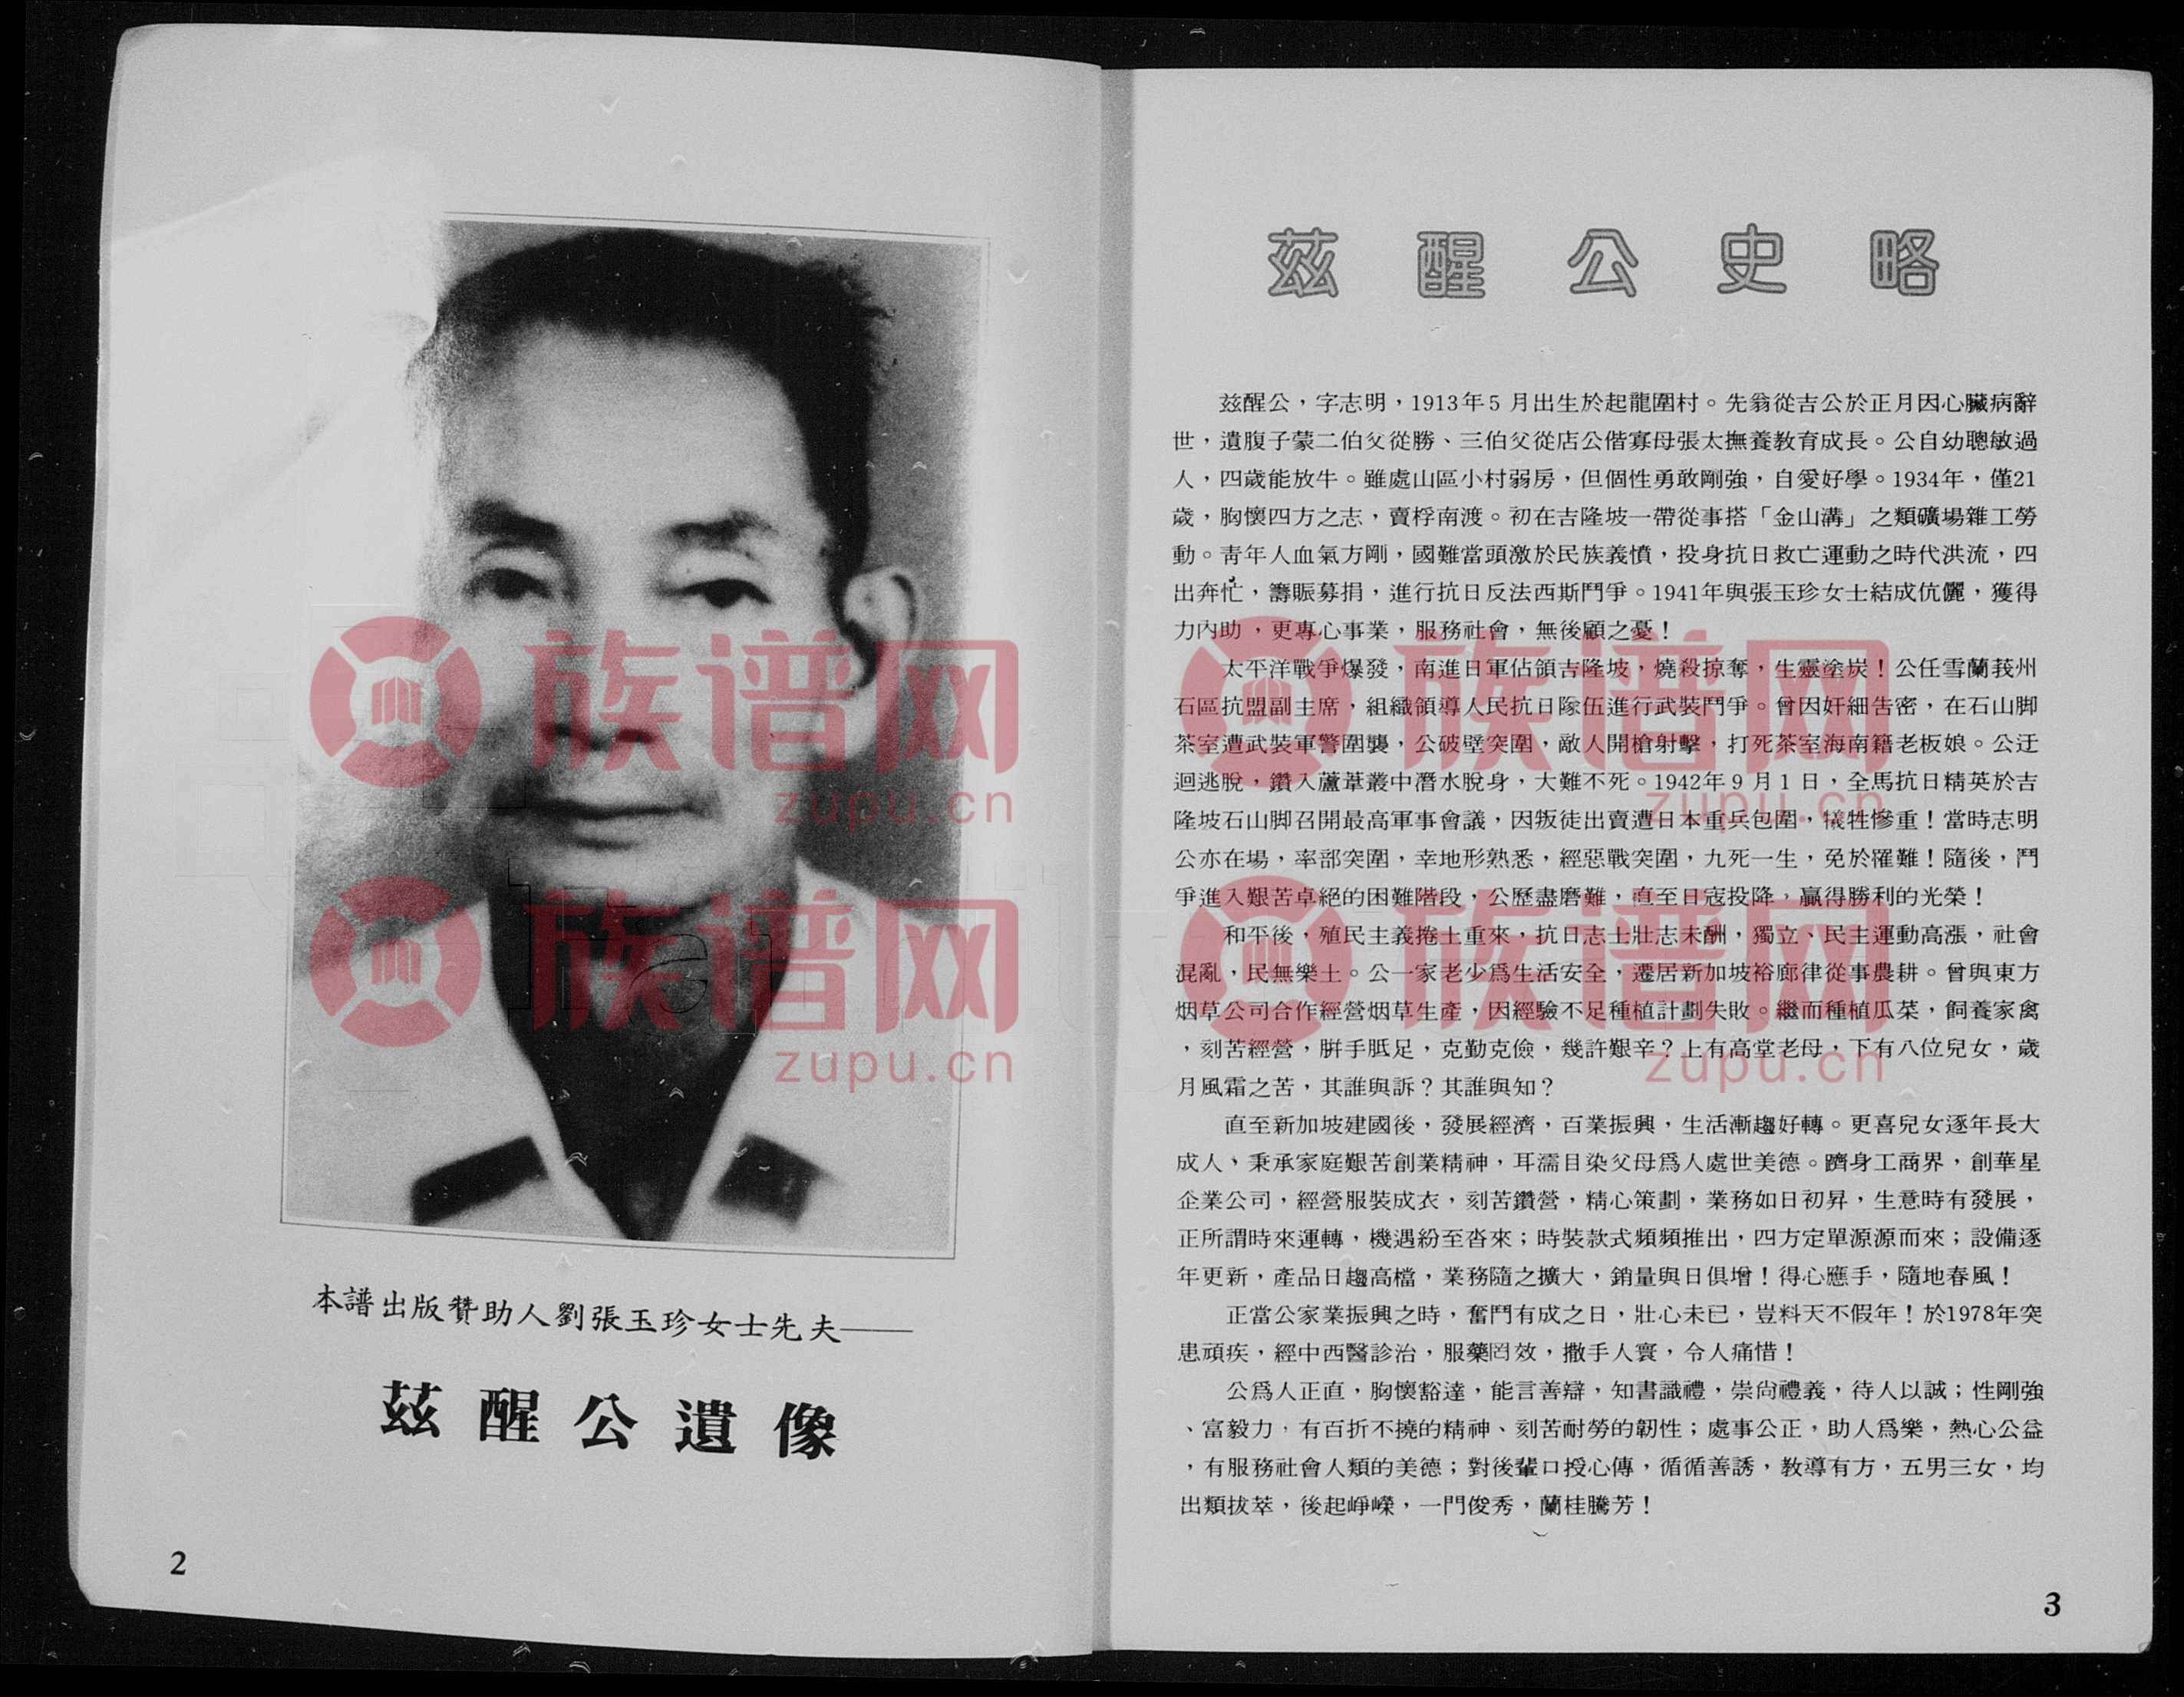 本譜出版贊助人劉張玉珍女士先夫——
茲醒公遺像
2
茲醒公史略
茲醒公，字志明，1913年5月出生於起龍圍村。先翁從吉公於正月因心臟病辭
世，遺腹子蒙二伯父從勝、三伯父從店公偕寡母張太撫養教育成長。公自幼聰敏過
人，四歲能放牛。雖處山區小村弱房，但個性勇敢剛強，自愛好學。1934年，僅21
歲，胸懷四方之志，賣桴南渡。初在吉隆坡一帶從事搭「金山溝」之類礦場雜工勞
動。靑年人血氣方剛，國難當頭激於民族義憤，投身抗日救亡運動之時代洪流，四
出奔忙，籌賑募捐，進行抗日反法西斯鬥爭。1941年與張玉珍女士結成伉儷，獲得
力內助，更專心事業，服務社會，無後顧之憂！
太平洋戰爭爆發，南進日軍佔領吉隆坡，燒殺掠奪，生靈塗炭！公任雪蘭莪州
石區抗盟副主席，組織領導人民抗日隊伍進行武裝鬥爭。曾因奸細告密，在石山脚
茶室遭武裝軍警圍襲，公破壁突圍，敵人開槍射擊，打死茶室海南籍老板娘。公迂
迴逃脫，鑽入蘆葦叢中潛水脫身，大難不死。1942年9月1日，全馬抗日精英於吉
隆坡石山脚召開最高軍事會議，因叛徒出賣遭日本重兵包圍，犧牲慘重！當時志明
公亦在場，率部突圍，幸地形熟悉，經惡戰突圍，九死一生，免於罹難！隨後，鬥
爭進入艱苦卓絕的困難階段，公歷盡磨難，直至日寇投降，贏得勝利的光榮！
和平後，殖民主義捲土重來，抗日志士壯志未酬，獨立、民主運動高漲，社會
混亂，民無樂土。公一家老少爲生活安全，遷居新加坡裕廊律從事農耕。曾與東方
烟草公司合作經營烟草生產，因經驗不足種植計劃失敗。繼而種植瓜菜，飼養家禽
，刻苦經營，胼手胝足，克勤克儉，幾許艱辛？上有高堂老母，下有八位兒女，歲
月風霜之苦，其誰與訴？其誰與知？
直至新加坡建國後，發展經濟，百業振興，生活漸趨好轉。更喜兒女逐年長大
成人，秉承家庭艱苦創業精神，耳濡目染父母爲人處世美德。躋身工商界，創華星
企業公司，經營服裝成衣，刻苦鑽營，精心策劃，業務如日初昇，生意時有發展，
正所謂時來運轉，機遇紛至沓來；時裝款式頻頻推出，四方定單源源而來；設備逐
年更新，產品日趨高檔，業務隨之擴大，銷量與日俱增！得心應手，隨地春風！
正當公家業振興之時，奮鬥有成之日，壯心未已，豈料天不假年！於1978年突
患頑疾，經中西醫診治，服藥罔效，撒手人寰，令人痛惜！
公爲人正直，胸懷豁達，能言善辯，知書識禮，崇尙禮義，待人以誠；性剛強
、富毅力，有百折不撓的精神、刻苦耐勞的韌性；處事公正，助人爲樂，熱心公益
，有服務社會人類的美德；對後輩口授心傳，循循善誘，教導有方，五男三女，均
出類拔萃，後起崢嶸，一門俊秀，蘭桂騰芳！
3
族谱网
zupu.cn
族谱网
zupu.cn
族谱网
zupu.cn
族谱网
zupu.cn